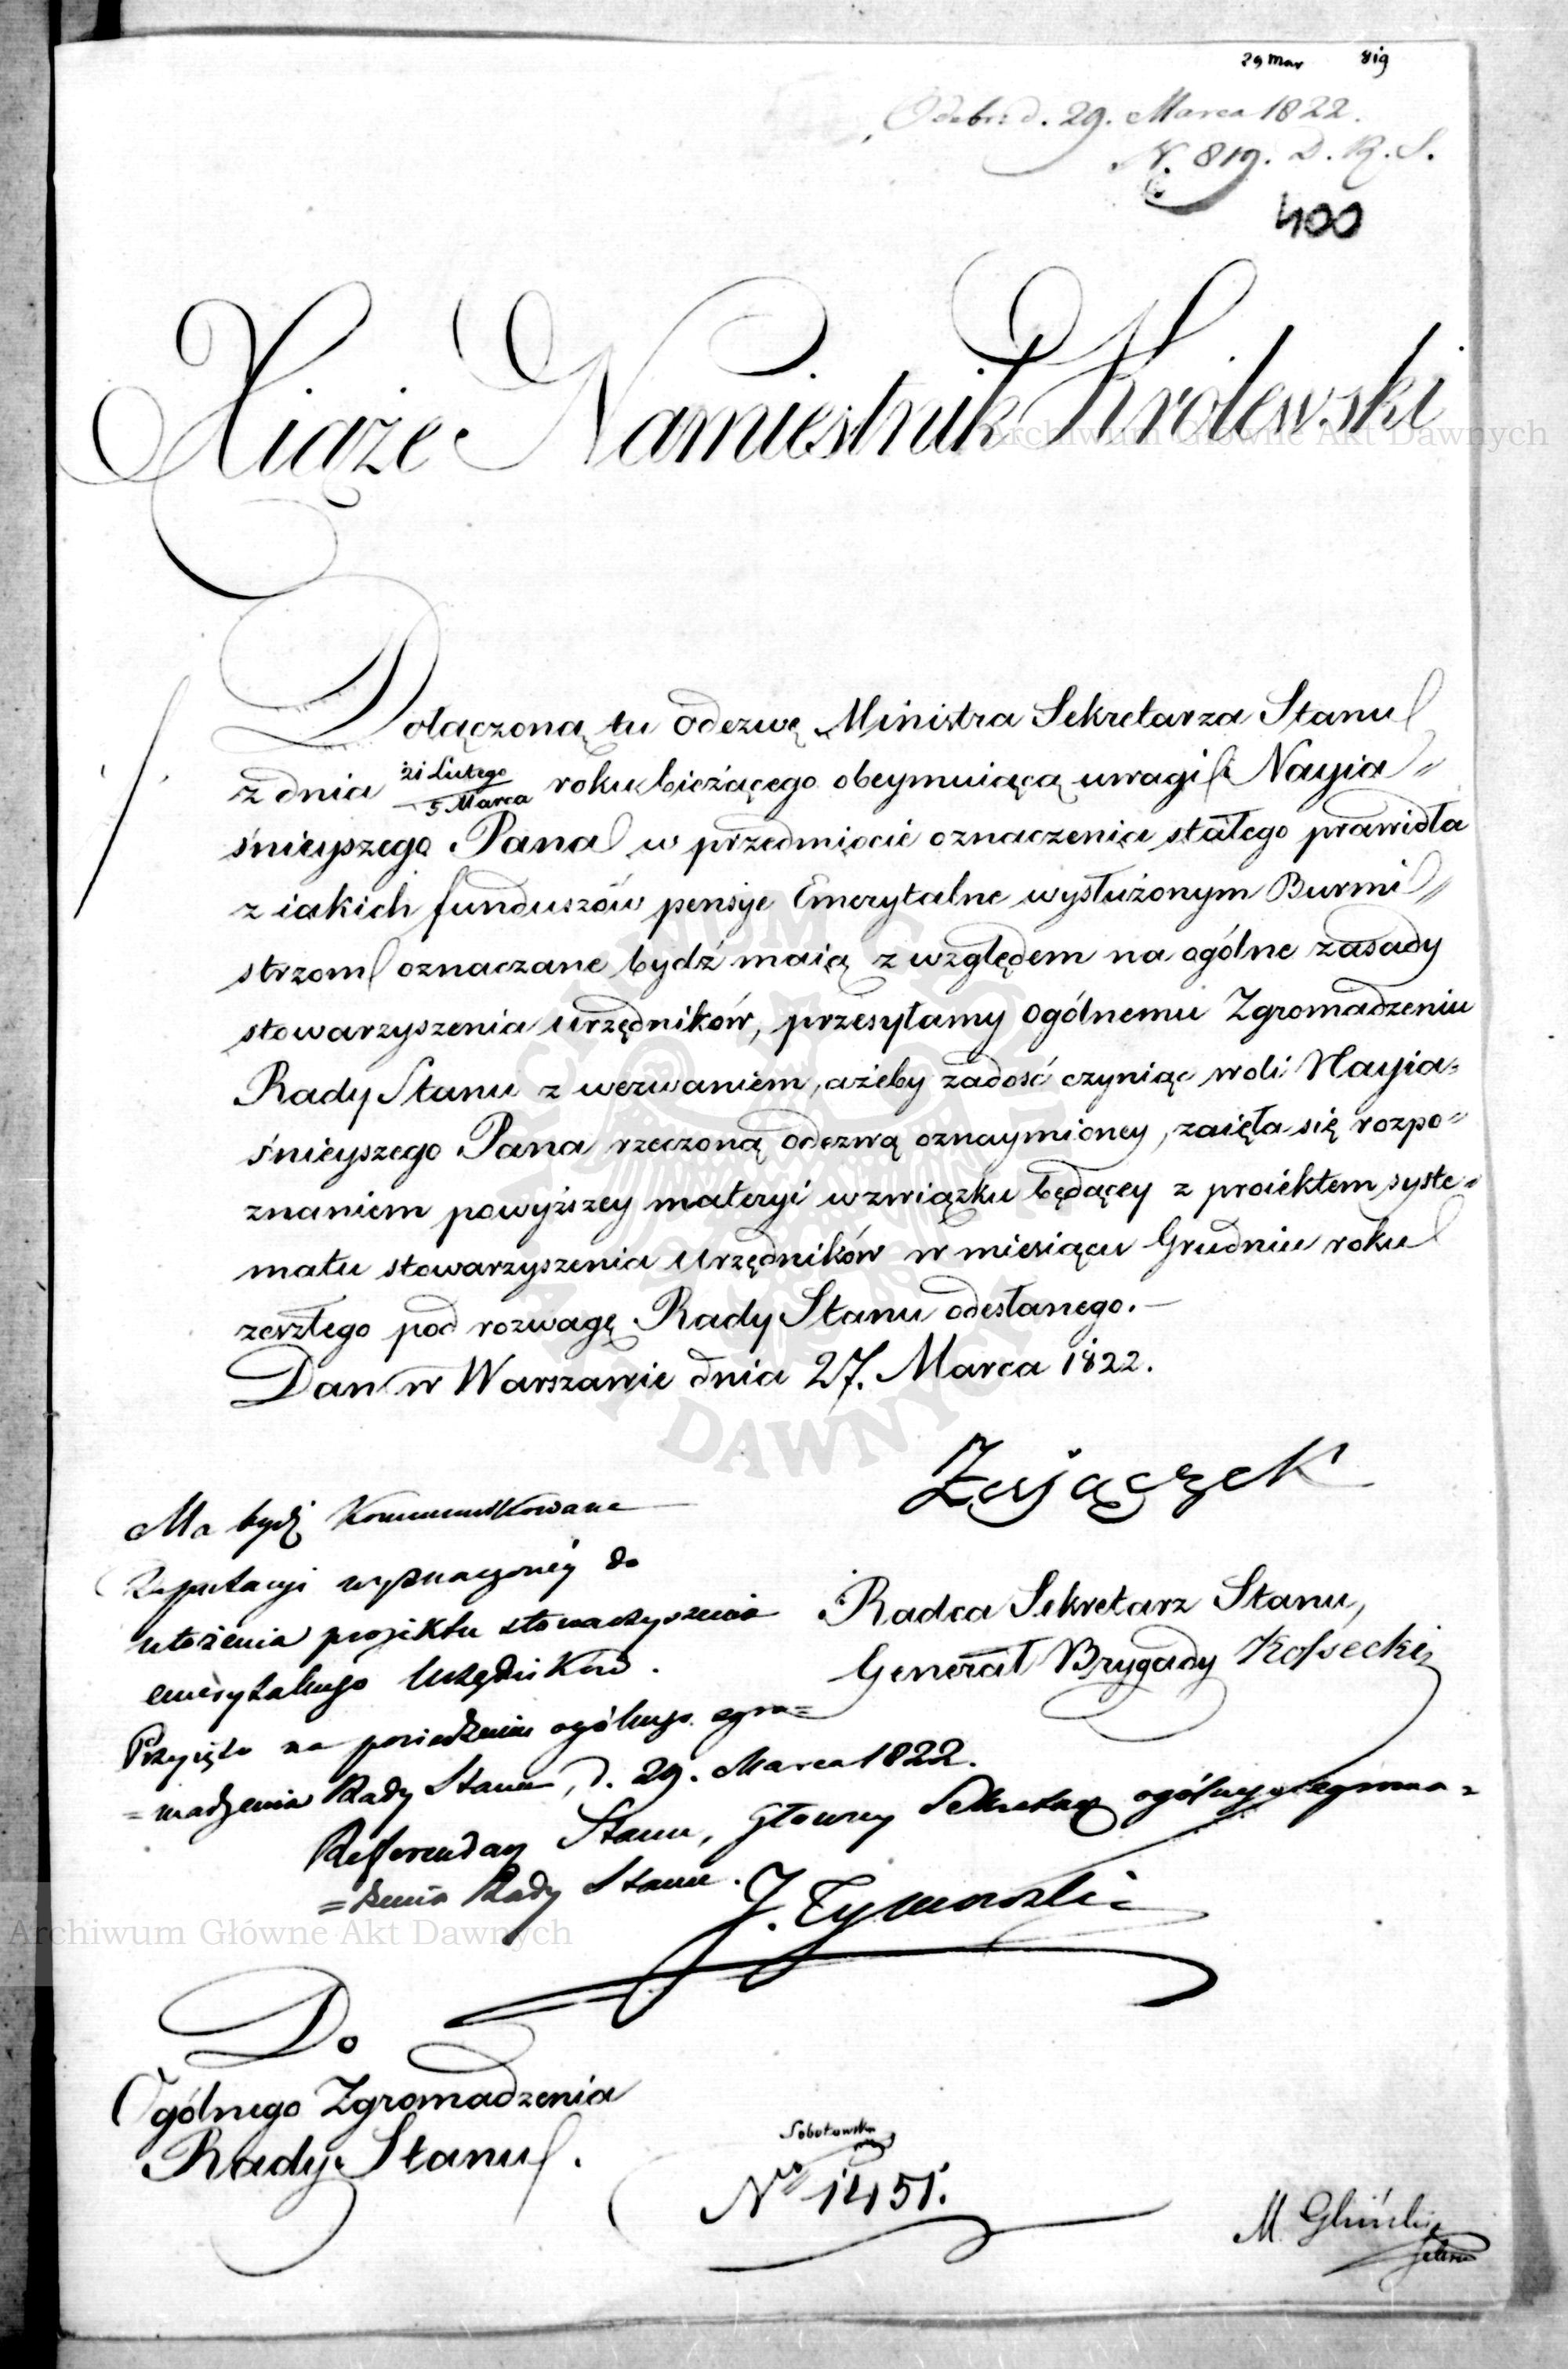 29 Mar 819
Odebr: d. 29. Marca 1822.
N. 819. D. R. S.
400
Xiąże Namiestnik Królewski
Dołączoną tu odezwę Ministra Sekretarza Stanu
z dnia 21 Lutego / 5 Marca roku bieżącego obeymuiącą uwagi Nayia=
śnieyszego Pana w przedmiocie oznaczenia stałego prawidła
z iakich funduszów pensye Emerytalne wysłużonym Burmi=
strzom oznaczane bydź maią z względem na ogólne zasady
stowarzyszenia urzędników, przesyłamy Ogólnemu Zgromadzeniu
Rady Stanu z wezwaniem, ażeby zadość czyniąc woli Nayia=
śnieyszego Pana rzeczoną odezwą oznaymioney, zaięła się rozpo=
znaniem powyższey materyi w związku będącey z proiektem syste=
matu stowarzyszenia Urzędników w miesiącu Grudniu roku
zeszłego pod rozwagę Rady Stanu odesłanego.—
Dan w Warszawie dnia 27. Marca 1822.
Zajączek
Ma bydź Kommunikowane
Deputacyi wyznaczoney do
ułożenia projektu stowarzyszenia
emerytalnego Urzędników.
Radca Sekretarz Stanu,
Generał Brygady Kossecki
Przyięto na posiedzeniu ogólnego zgro=
=madzenia Rady Stanu, d. 29. Marca 1822.
Referendarz Stanu, Główny Sekretarz ogólnego zgroma=
=dzenia Rady Stanu.
J. Tymowski
Do
Ogólnego Zgromadzenia
Rady Stanu.
Sobolewski
No 1451.
M. Gliński
Archiwum Główne Akt Dawnych
Archiwum Główne Akt Dawnych
ARCHIWUM GŁÓWNE AKT DAWNYCH